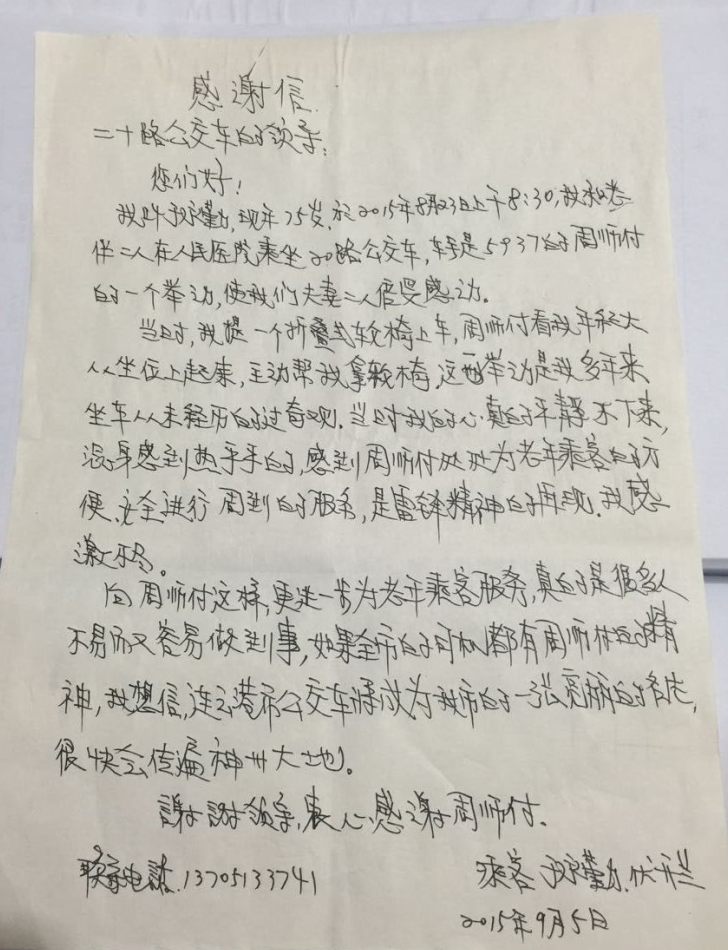 感谢信
二十路公交车的领导:
您们好!
我叫勤,现年75岁,于2015年8月23日上午8:30,我和老
伴二人在人民医院乘坐20路公交车,车号是5937的周师付
的一个举动,使我们夫妻二人倍受感动。
当时,我提一个折叠式轮椅上车,周师付看我年纪大
从坐位上起来,主动帮我拿轮椅,这一举动是我多年来
坐车从未经历的过奇观.当时我的心真的平静不下来,
浑身感到热乎乎的,感到周师付处处为老年乘客的方
便.安全进行周到的服务,是雷锋精神的再现.我感
激不尽。
向周师付这样,更进一步为老年乘客服务,真的是很多人
不易而又容易做到事,如果全市的司机都有周师付的精
神,我想信,连云港市公交车将成为我市的一张亮丽的名片,
很快会传遍神州大地。
謝謝领导,衷心感谢周师付.
联系电话.13705133741
乘客 勤.
2015年9月5日